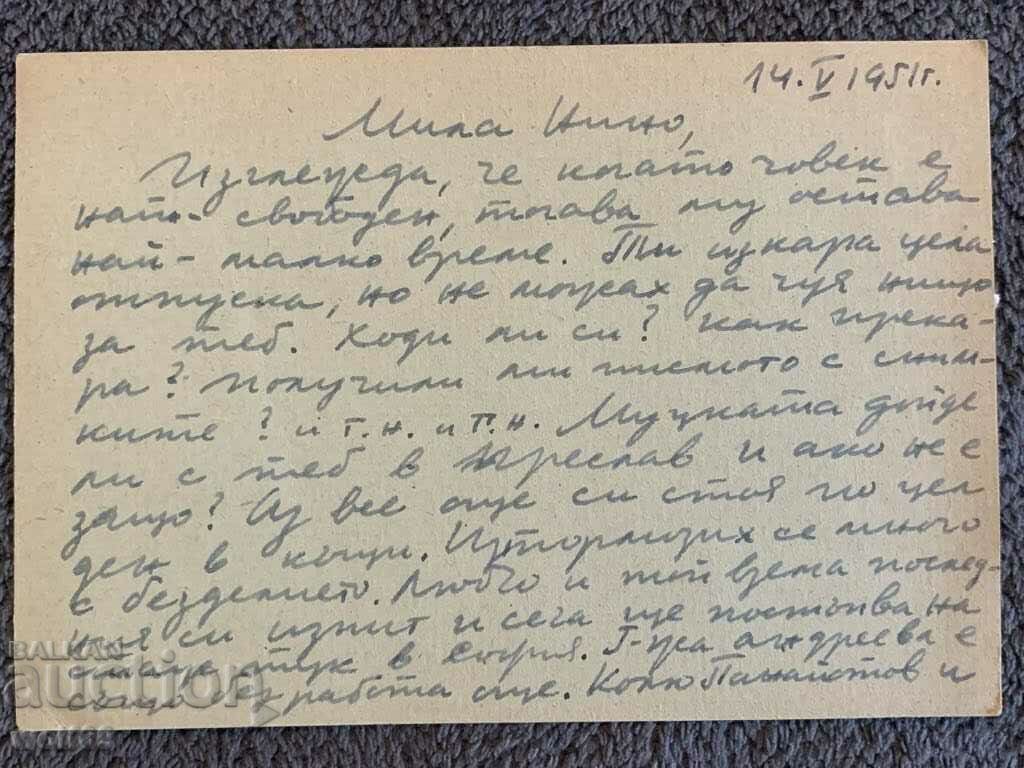 14. V 1951г.
Мила Нино,
Изглежда, че когато човек е
най-свободен, тогава му остава
най-малко време. Ти изкара цела
отпуска, но не можах да чуя нищо
за теб. Ходи ли си? Как прека-
ра? Получили ли писмото с сним-
ките? и т.н. и п.н. Муцката дойде
ли с теб в Преслав и ако не е
защо? Аз все още си стоя по цел
ден в къщи. Изтормозих се много
с безделието. Любчо и той взема послед-
ния си изпит и сега ще постъпва на
стаж тук в София. Г-жа Андреева е
също без работа още. Колю Панайотов и
BALKAN
auction